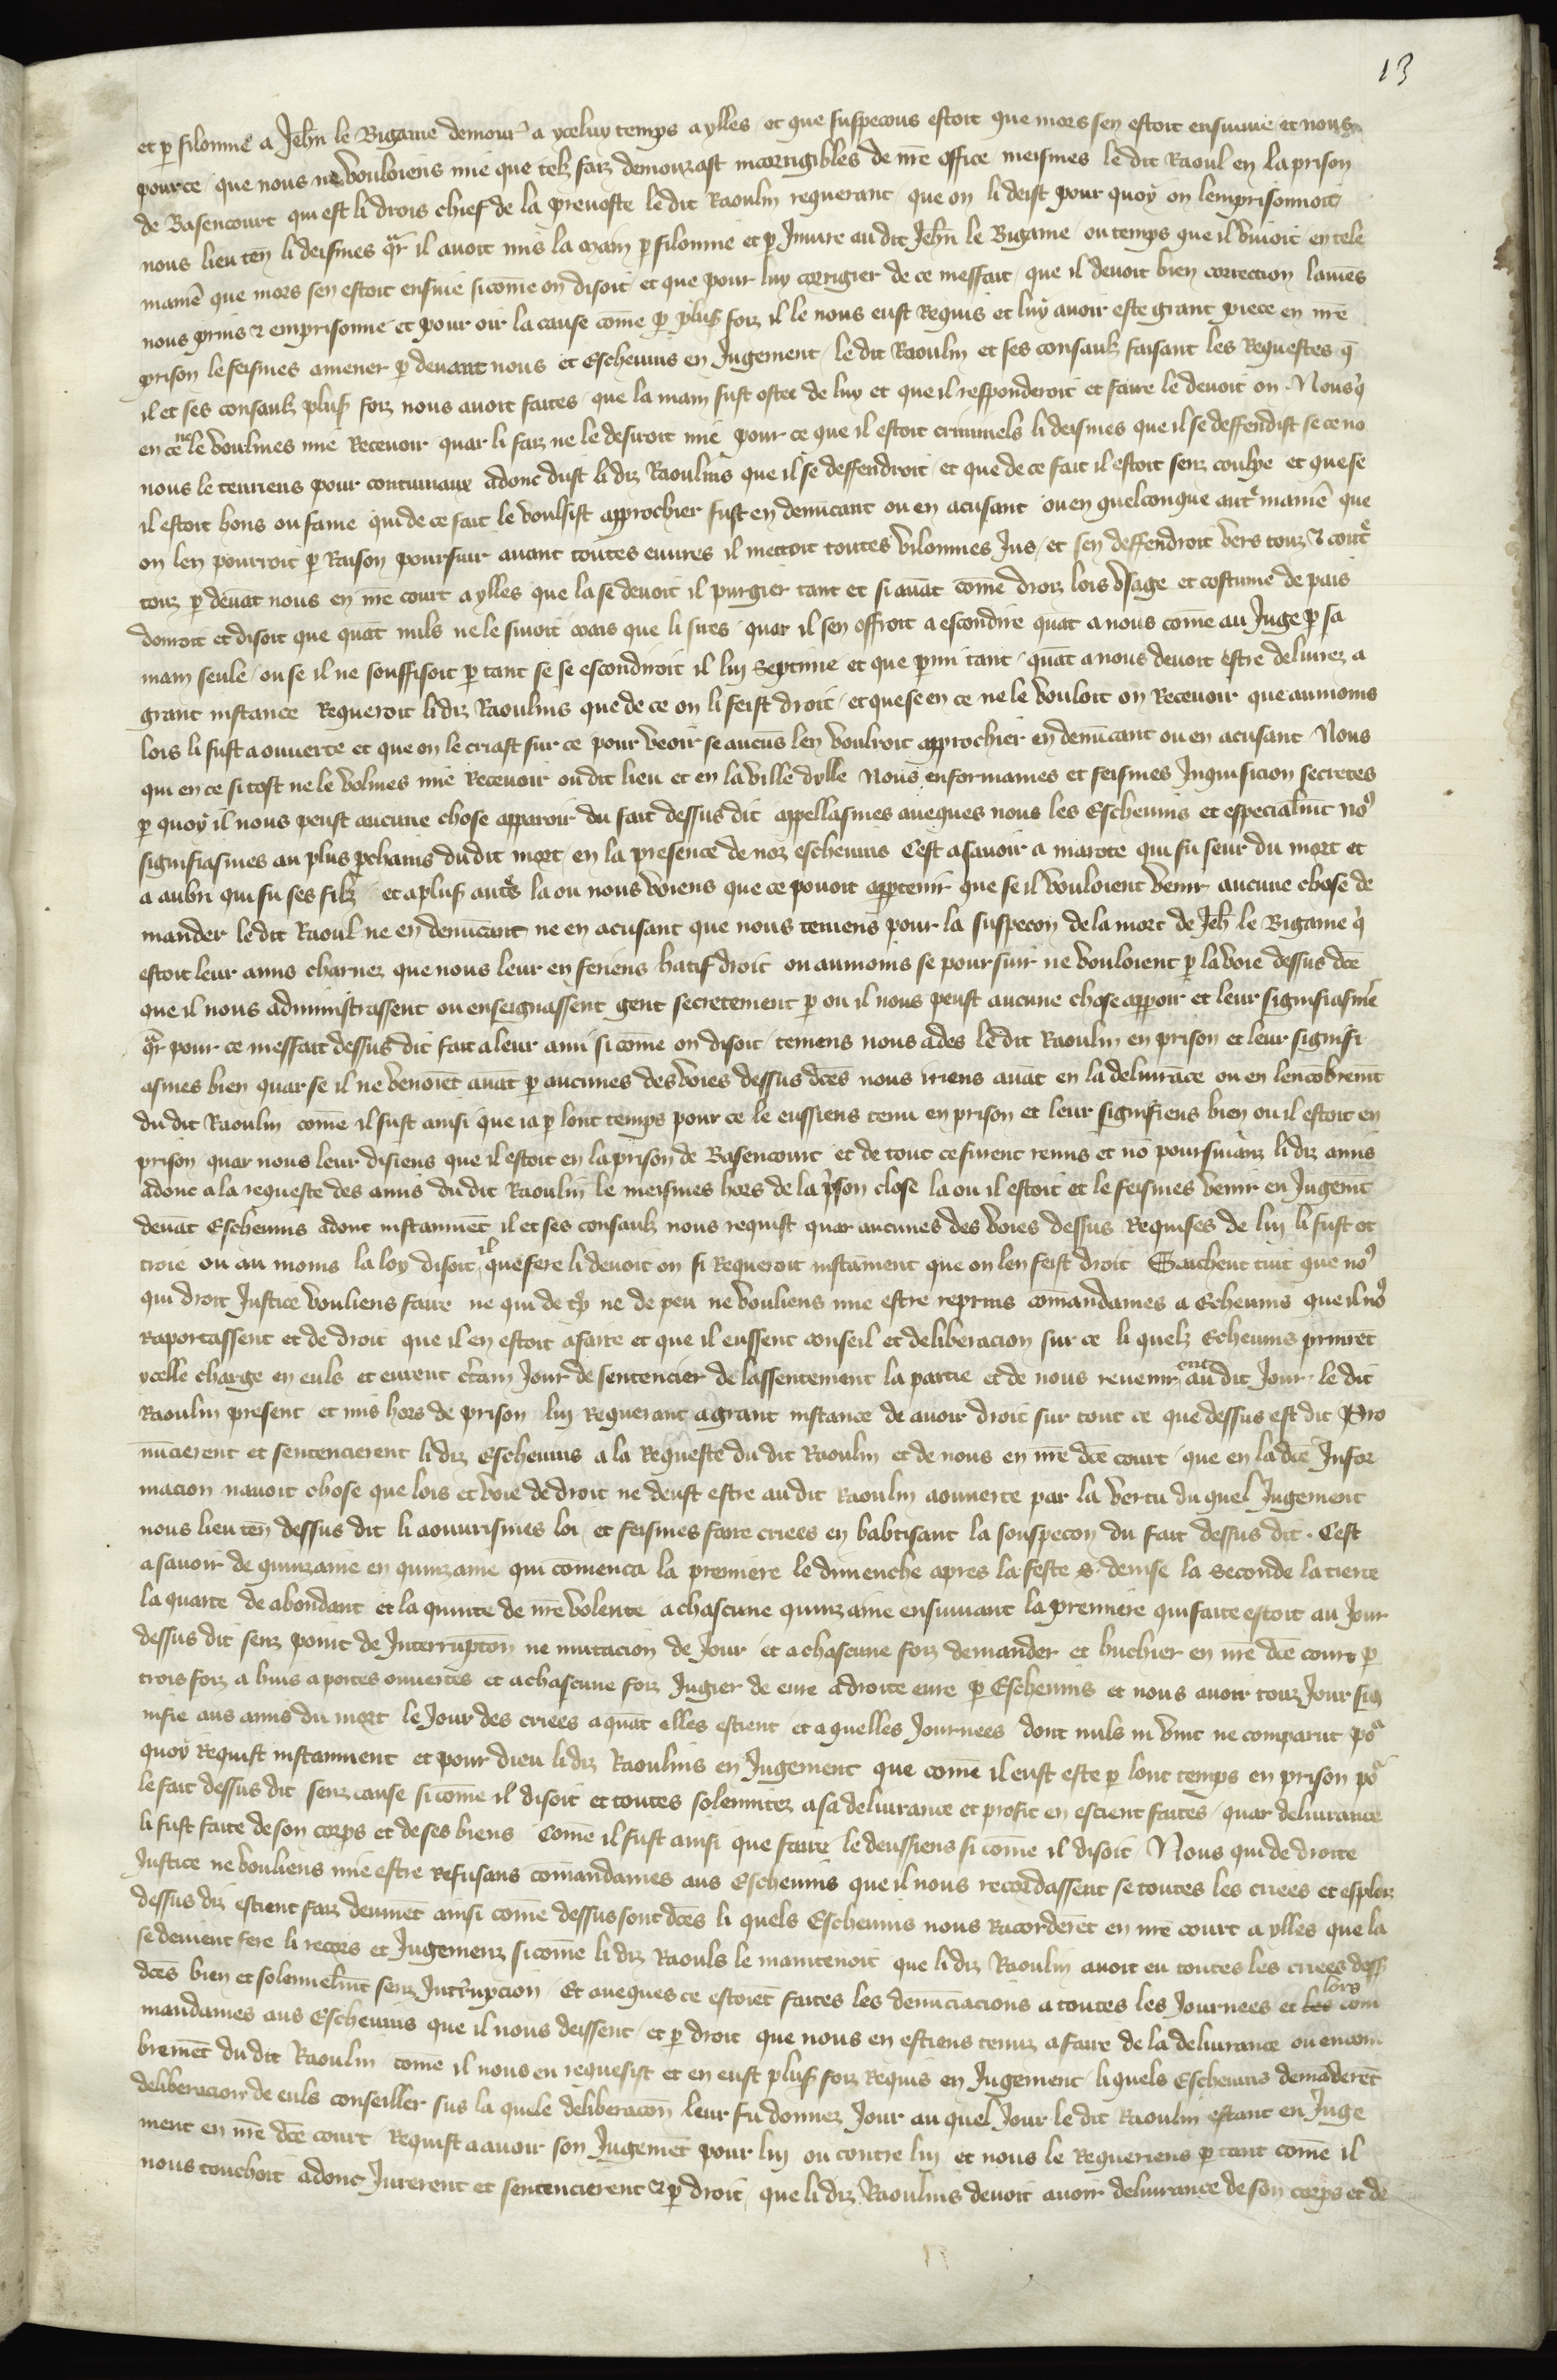 13
et p filonnie a Jehn le Bigame demour a yceluy temps a ylles et que suspecons estoit que mors sen estoit ensuiuie et nous
pource que nous ne vouloiens mie que telz faiz demourast incorrigibles de nre office meismes le dit Raoul en la prison
de Basencourt qui est li drois chief de la preuoste le dit Raoulin requerant que on li deist pour quoy on lemprisonnoit
nous lieu ten li deismes qr il auoit mis la main p filonnie et p Iniure au dit Jehn le Bigame ou temps que il viuoit en tele
manie que mors sen estoit ensuie si come on disoit et que pour luy corrigier de ce meffait que il deuoit bien correction lauies
nous prins & emprisonne et pour oir la cause come p plus foiz il le nous eust Requis et luy auoir este grant piece en nre
prison le feismes amener p deuant nous et Escheuins en Jugement le dit Raoulin et ses consaulz faisant les Requestes q
il et ses consaulz plus foiz nous auoit faites que la main fust ostee de luy et que il responderoit et faire le deuoit on Nous q
en ce ne le voulmes mie Receuoir quar li faiz ne le desiroit mie pour ce que il estoit criminels li deismes que il se deffendist se ce no
nous le tenriens pour contumaux adonc dist li diz Raoulins que il se deffendroit et que de ce fait il estoit senz coulpe et que se
il estoit hons ou fame qui de ce fait le voulsist approchier fust en denucant ou en acusant ou en quelconque autr manie que
on len pourroit p Raison poursuir auant toutes euures il mettoit toutes vilonnies Jus et sen deffendroit vers touz & contr
touz p deuat nous en nre court a ylles que la se deuoit il purgier tant et si auat come droiz lois vsage et costume de pais
donroit et disoit que quat nuls ne le siuoit mais que li sires quar il sen offroit a escondire quat a nous come au Juge p sa
main seule ou se il ne souffisoit p tant se se escondiroit il luy septime et que pmi tant quat a nous deuoit estre deliurez a
grant instance Requeroit li diz Raoulins que de ce on li feist droit et que se en ce ne le vouloit on Receuoir que aumoins
lois li fust aouuerte et que on le criast sur ce pour veoir se aucus len voulroit approchier en denucant ou en acusant Nous
qui en ce si tost ne le volmes mie Receuoir ou dit lieu et en la ville dylle Nous enformames et feismes Inquisicion secretes
p quoy il nous peust aucune chose apparoir du fait dessus dit appellasmes aueques nous les Escheuins et especialmt no
signifiasmes au plus pchains du dit mort en la presence de noz escheuins Cest asauoir a marote qui fu seur du mort et
a aubri qui fu ses filz et a plus autes la ou nous voiens que ce pouoit apptenir que se il vouloient venir aucune chose de
mander le dit Raoul ne en denucant ne en acusant que nous teniens pour la suspecon de la mort de Jeh le Bigame q
estoit leur amis charnez que nous leur en feriens hatif droit ou aumoins se poursuir ne vouloient p la voie dessus dce
que il nous administrassent ou enseignassent gent secretement p ou il nous peust aucune chose appoir et leur signifiasme
qr pour ce meffait dessus dit fait a leur ami si come on disoit teniens nous ades le dit Raoulin en prison et leur signifi
asmes bien quar se il ne venoiet auat p aucunes des voies dessus dces nous iriens auat en la deliurace ou en lencobremt
du dit Raoulin come il fust ainsi que ia p lont temps pour ce le eussiens tenu en prison et leur signifiens bien ou il estoit en
prison quar nous leur disiens que il estoit en la prison de Basencourt et de tout ce furent remis et no poursuianz li diz amis
adonc a la requeste des amis du dit Raoulin le meismes hors de la pson close la ou il estoit et le feismes venir en Jugemt
deuat Escheuins adont instanmet il et ses consaulz nous requist quar aucunes des voies dessus Requises de luy li fust ot
troie ou au moins la loy disoit il que fere li deuoit on si Requeroit instament que on len feist droit Saichent tuit que no
qui droit Justice vouliens faire ne qui de tp ne de peu ne vouliens mie estre reprins comandames a Escheuins que il no
Raportassent et de droit que il en estoit a faire et que il eussent conseil et deliberacion sur ce li quelz Escheuins prinret
ycelle charge en euls et eurent ctain Jour de sentencier de lassentement la partie et de nous reuenir ent au dit Jour le dit
Raoulin present et mis hors de prison luy Requerant a grant instance de auoir droit sur tout ce que dessus est dit Pro
nucierent et sentencierent li diz Escheuins a la Requeste du dit Raoulin et de nous en nre dce court que en la dce Infor
macion nauoit chose que lois et voie de droit ne deust estre au dit Raoulin aouuerte par la vertu du quel Jugement
nous lieu ten dessus dit li aouurismes loi et feismes faire criees en babtisant la souspecon du fait dessus dit . Cest
asauoir de quinzaine en quinzaine qui comenca la premiere le dimenche apres la feste S. denise la seconde la tierce
la quarte de abondant et la quinte de nre volente a chascune quinzaine ensuiuant la premiere qui faite estoit au Jour
dessus dit senz point de Interrupton ne mutacion de Jour et a chascune foiz demander et huchier en nre dce court p
trois foiz a huis a portes ouuertes et a chascune foiz Jugier de eure a droite eure p Escheuins et nous auoir touz Jour sig
nifie aus amis du mort le Jour des criees a quat elles estient et a quelles Journees dont nuls ni vint ne comparut po
quoy Requist instanment et pour dieu li diz Raoulins en Jugement que come il eust este p lont temps en prison po
le fait dessus dit senz cause si come il disoit et toutes solennitez a sa deliurance et profit en estient faites quar deliurance
li fust faite de son corps et de ses biens Come il fust ainsi que faire le deussiens si come il disoit Nous qui de droite
Justice ne vouliens mie estre Refusans comandames aus Escheuins que il nous recordassent se toutes les criees et esploiz
dessus diz estient faiz deumet ainsi come dessus sont dces li quels Escheuins nous Racorderet en nre court a ylles que la
se deuient fere li recors et Jugemenz si come li diz Raouls le maintenoit que li diz Raoulin auoit eu toutes les criees dess
dces bien et solennelmt senz Intrupcion Et aueques ce estoiet faites les denuciacions a toutes les Journees et lors com
mandames aus Escheuins que il nous deissent et p droit que nous en estiens tenuz a faire de la deliurance ou encom
bremet du dit Raoulin come il nous en requesist et en eust plus foiz Requis en Jugement li quels Escheuins demaderet
deliberacion de euls conseiller sus la quele deliberacon leur fu donnez Jour au quel Jour le dit Raoulin estant en Juge
ment en nre dce court Requist a auoir son Jugemet pour luy ou contre luy et nous le Requeriens p tant come il
nous touchoit adonc Jurerent et sentencierent & p droit que li diz Raoulins deuoit auoir deliurance de son corps et de